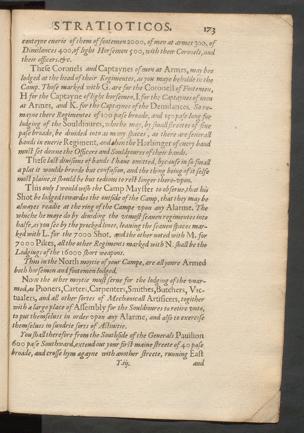 STRATIOTICOS. 173
conteyne euerie of them of footemen 2000, of men at armes 300, of
Dimilances 400, of light Horsemen 500, with their Coronels, and
their officers. &c.
These Coronels and Captaynes of men at Armes, may bee
lodged at the head of their Regimentes, as you maye beholde in the
Camp. Those marked with G. are for the Coronels of Footemen,
H for the Captayne of light horsemen, I. for the Captaynes of men
at Armes, and K. for the Captayne of the Demilances. So re-
mayne there Regimentes of 120 pase broade, and 150 pase long for
lodging of the Souldioures, whiche may, by small streetes of fiue
pase broade, be diuided into as many spaces, as there are seuerall
bands in euerie Regiment, and alwaies the Harbinger of euery band
must set downe the Officers and Souldioures of their bands.
These last diuisions of bands I haue omitted, bycause in so small
a plat it woulde breede but confusion, and the thing being of it selfe
most plaine, it should be but tedious to rest longer therevpon.
This only I would wish the Camp Mayster to obserue, that his
Shot be lodged towardes the outside of the Camp, that they may be
alwayes readie at the ring of the Campe vpon any Alarme. The
whiche he maye do by diuiding the vtmost seauen regimentes into
halfe, as you see by the pricked lines, leauing the seauen spaces mar-
ked with L. for the 7000 Shot, and the other noted with M. for
7000 Pikes, all the other Regiments marked with N. shall be the
Lodging of the 16000 short weapons.
Thus in the North moytie of your Campe, are all youre Armed
both horsemen and footemen lodged.
Now the other moytie must serue for the lodging of the vnar-
med, as Pioners, Carters, Carpenters, Smithes, Butchers, Vic-
tualers, and all other sortes of Mechanicall Artificers, togither
with a large place of Assembly for the Souldioures to retire vnto,
to put themselues in order vpon any Alarme, and also to exercise
themselues in sundrie sorts of Actiuitie.
You shall therefore from the Southside of the Generals Pauilion
600 pase Southward, extend out your first maine streete of 40 pase
broade, and crosse hym agayne with another streete, running East
T.iij. and